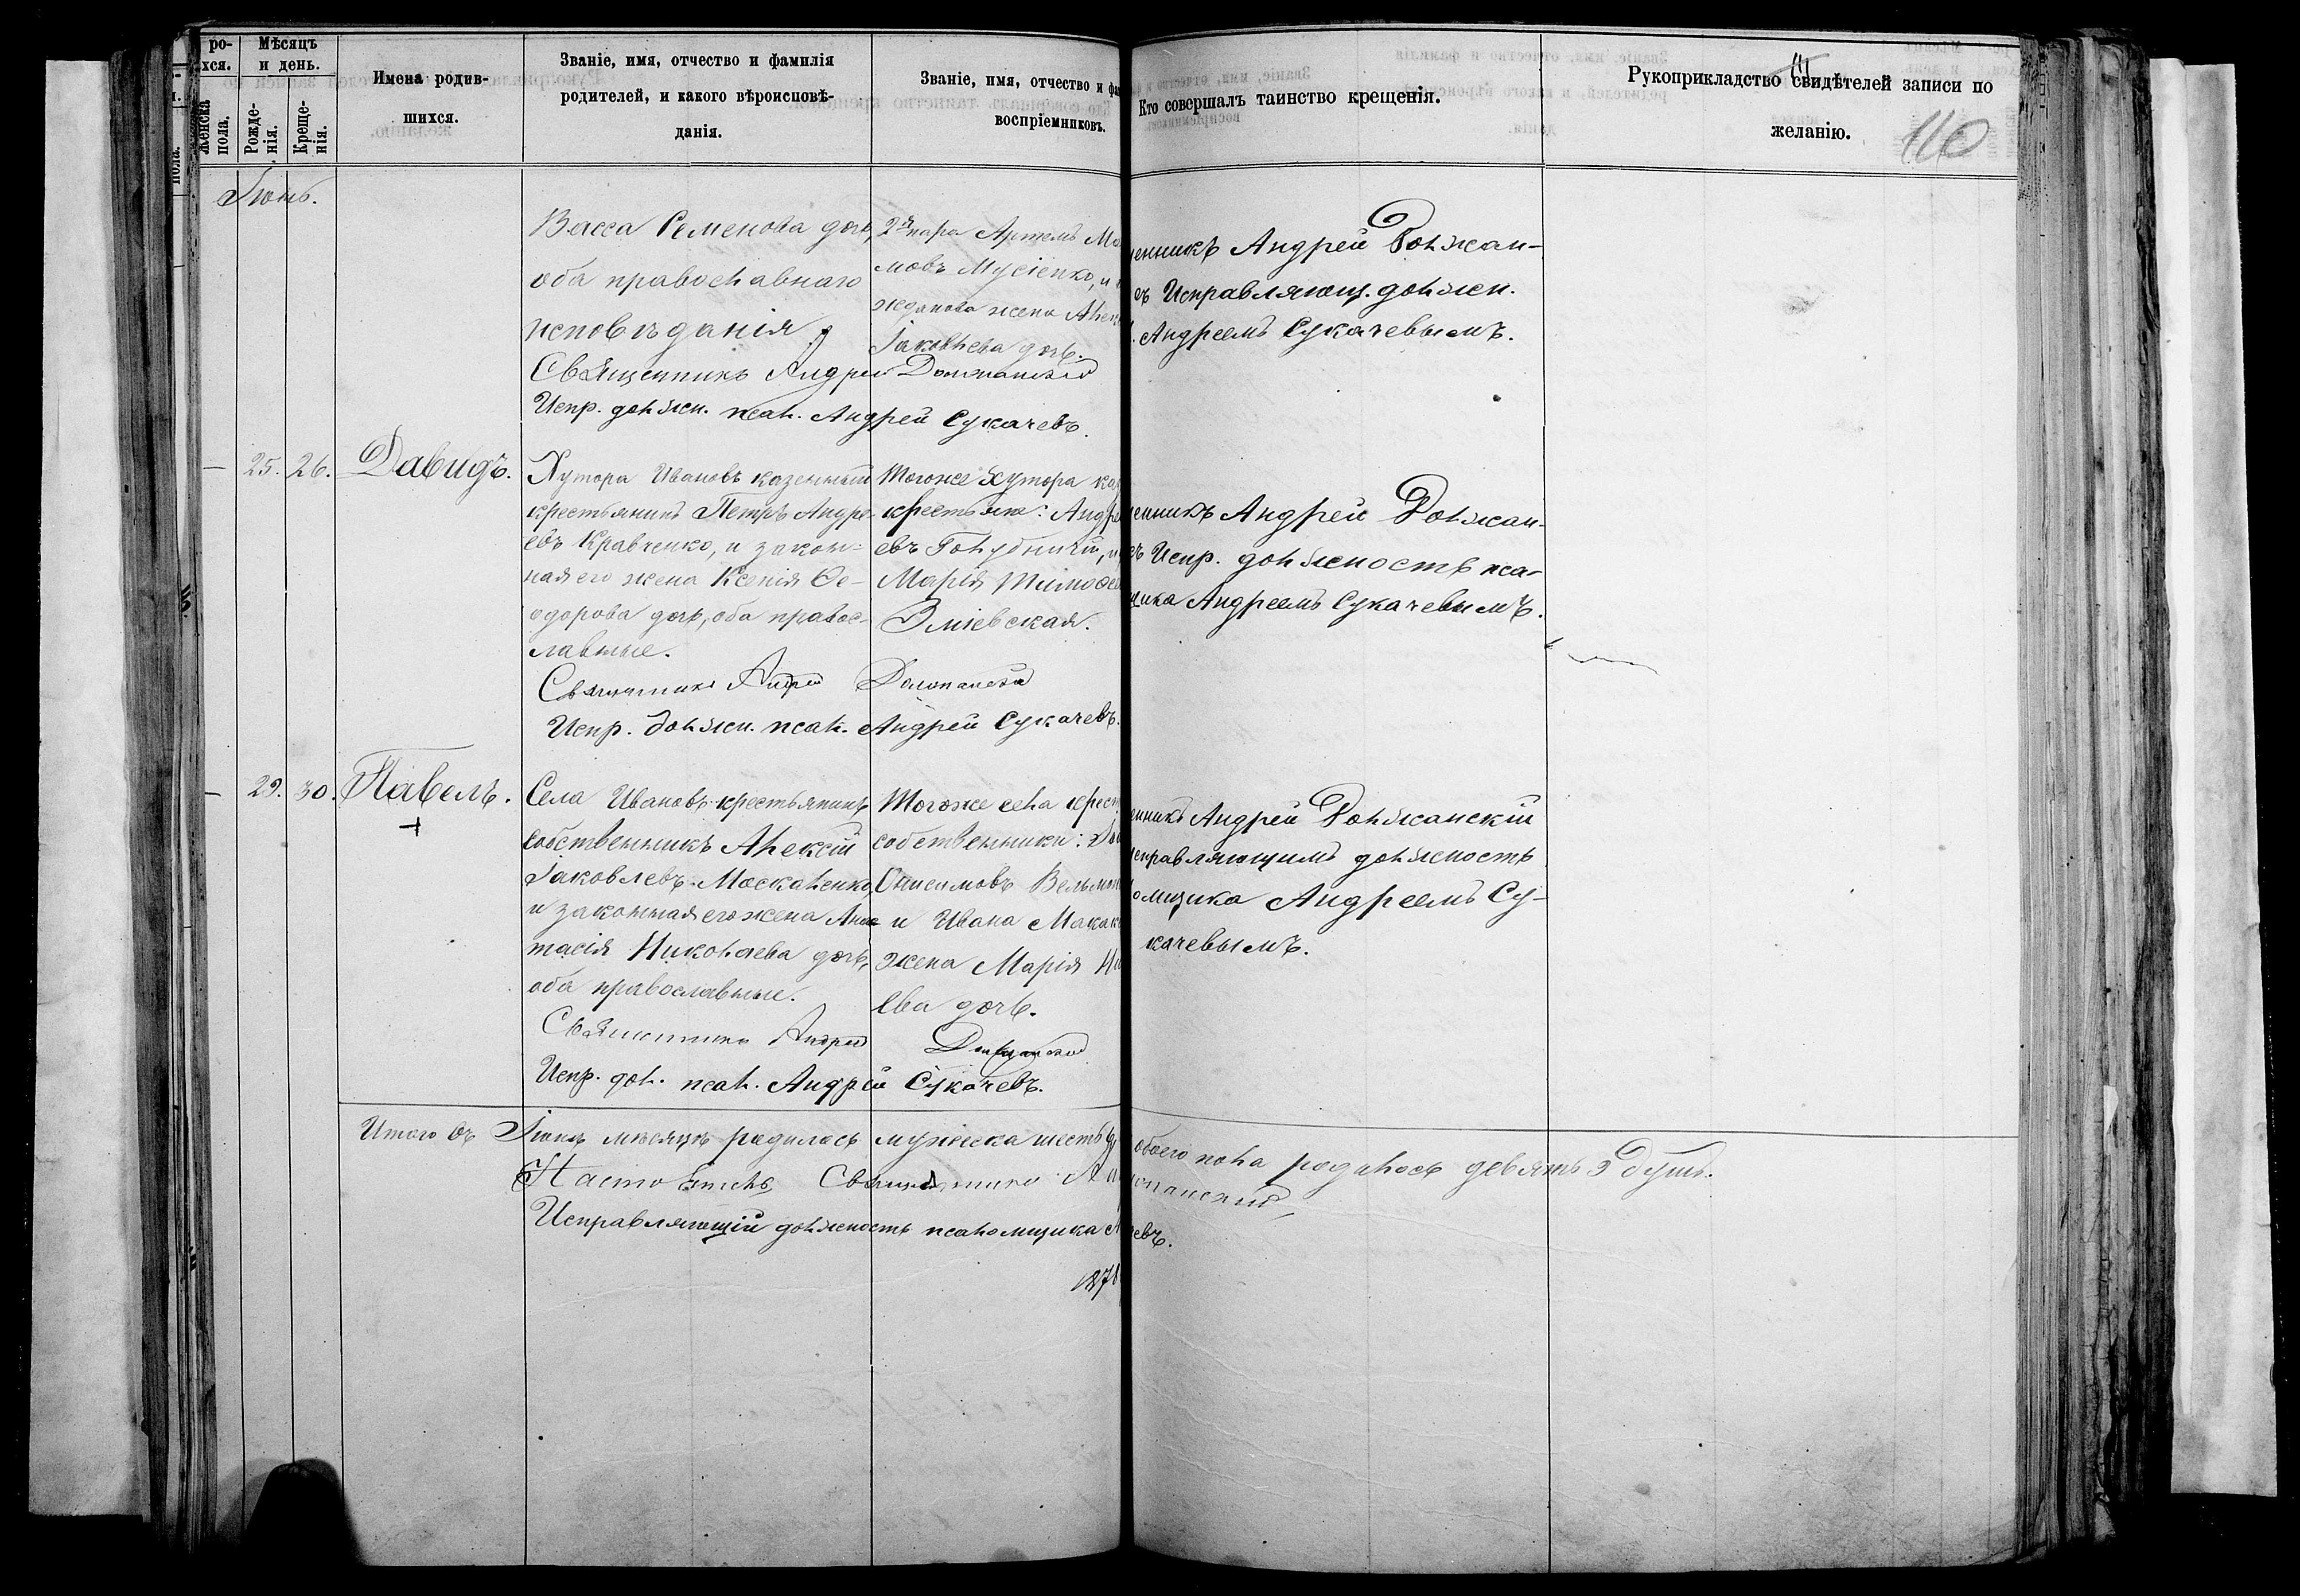 ро-
хся.
Мѣсяцъ
и день.
женска
пола.
Рожде-
нія.
Креще-
нія.
Имена родив-
шихся.
Званіе, имя, отчество и фамилія
родителей, и какого вѣроисповѣ-
данія.
Званіе, имя, отчество и фа
воспріемниковъ.
Кто совершалъ таинство крещенія.
Рукоприкладство свидѣтелей записи по
желанію.
110
Іюнь.
Васса Семенова дочь,
оба православнаго
исповѣданія.
2я пара Артемъ Ма
мовъ Мусіенко, и
жена
Іаковлева дочь.
Священникъ Андрей Должанскій
Испр. должн. псал. Андрей Сукачевъ.
енникъ Андрей Должан-
ъ Исправляющ. должн.
Андреемъ Сукачевымъ.
— 25. 26. Давидъ.
Хутора Ивановъ казенный
крестьянинъ Петръ Андре-
евъ Кравченко, и закон-
ная его жена Ксенія Ѳе-
одорова дочь, оба правос-
лавные.
Тогоже Хутора каз
крестьяне: Андре
евъ Голубничій, и
Марія Тимоѳе
Зміевская.
Священникъ Андрей Должанскій
Испр. должн. псал. Андрей Сукачевъ.
енникъ Андрей Должан-
ъ Испр. должность пса-
щика Андреемъ Сукачевымъ.
— 29. 30. Павелъ.
+
Села Ивановъ крестьянинъ
собственникъ Алексій
Іаковлевъ Москаленко,
и законная его жена Анас
тасія Николаева дочь,
оба православные.
Тогоже села крест
собственники:
Онисимовъ Вельм
и Ивана Макак
жена Марія Ни
ева дочь.
Священникъ Андрей Должанскій
Испр. дол. псал. Андрей Сукачевъ.
енникъ Андрей Должанскій
исправляющимъ должность
омщика Андреемъ Су-
качевымъ.
Итого въ Іюнѣ мѣсяцѣ родилось мужеска шесть
обоего пола родилось девять 9 душъ.
Настоятель Священникъ
лжанскій
Исправляющій должность псаломщика А
евъ.
187